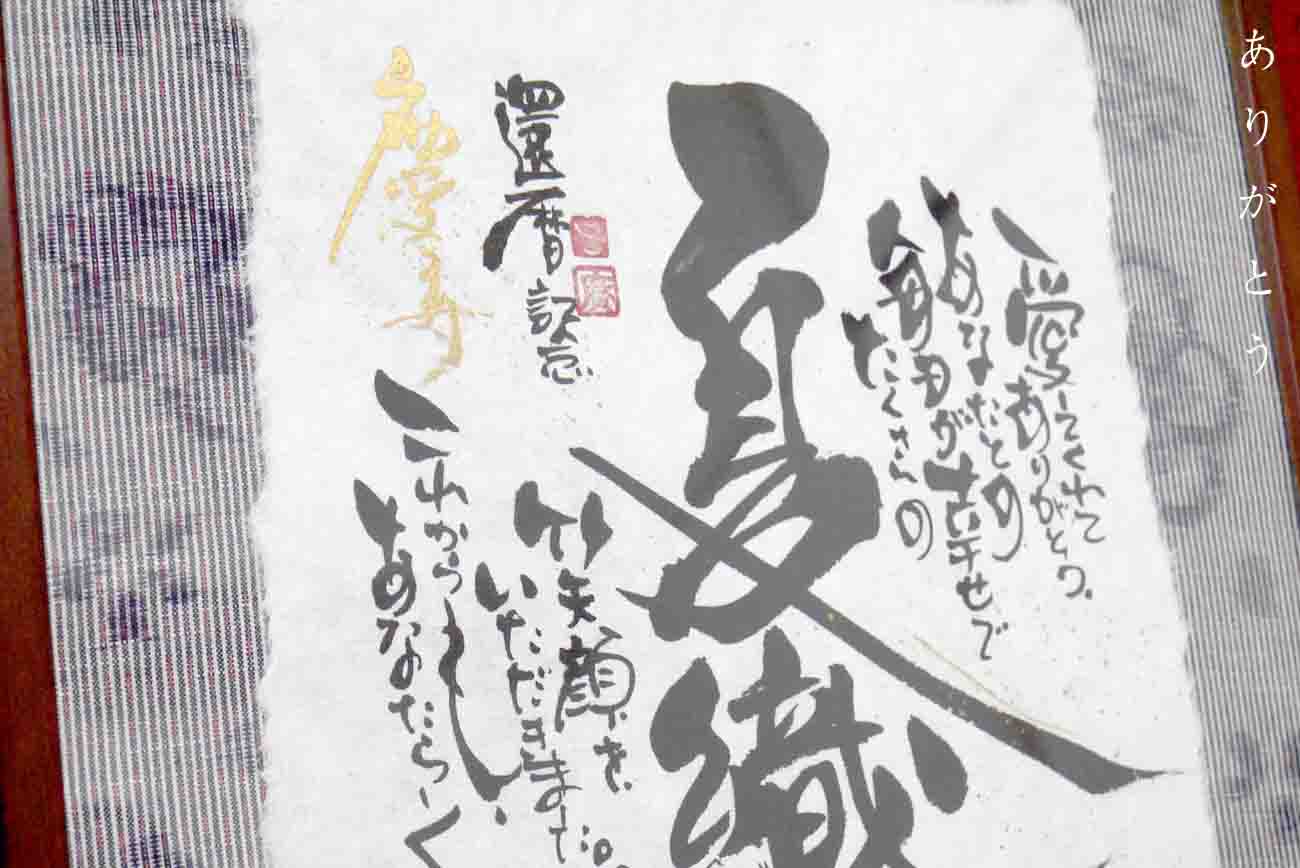 ありがとう
愛してくれて
ありがとう。
あなたとの
毎日が幸せで
たくさんの
夏織
笑顔を
いただきました。
還暦記念
これからも
あなたらしく